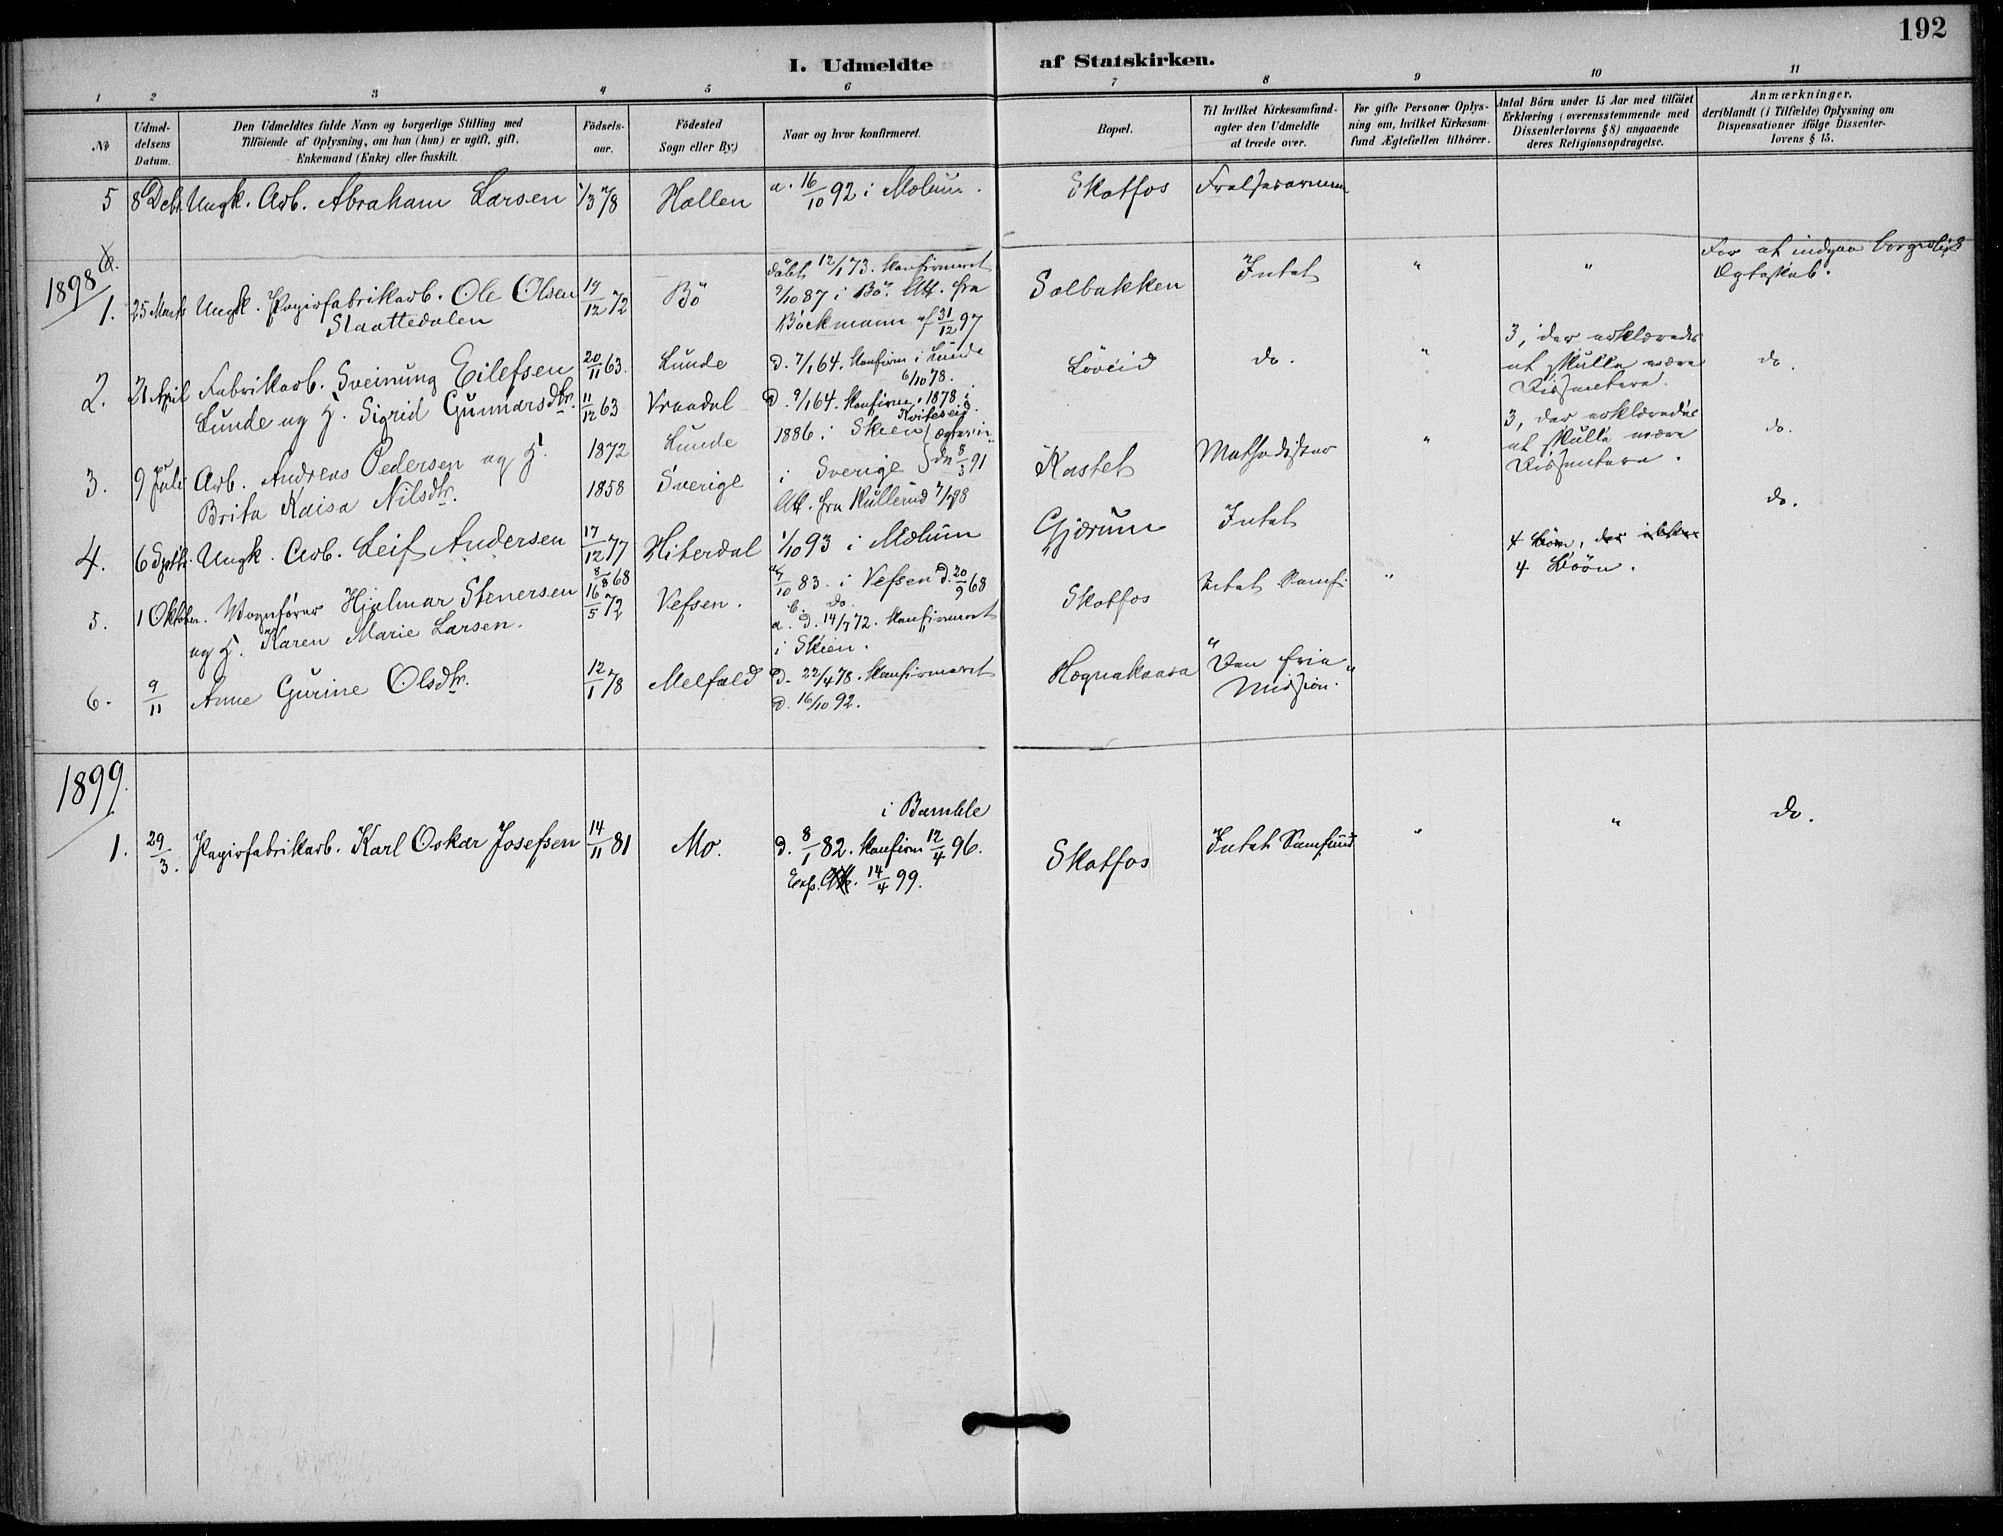 192
I. Udmeldte af Statskirken.
1 2 3 4 5 6 7 8 9 10 11
№
Udmel-
delsens
Datum.
Den Udmeldtes fulde Navn og borgerlige Stilling med
Tilföiende af Oplysning, om han (hun) er ugift, gift,
Enkemand (Enke) eller fraskilt.
Födsels-
aar.
Födested
Sogn eller By.)
Naar og hvor konfirmeret.
Bopæl.
Til hvilket Kirkesamfund-
agter den Udmeldte
at træde over.
For gifte Personer Oplys-
ning om, hvilket Kirkesam-
fund Ægtefællen tilhörer.
Antal Börn under 15 Aar med tilföiet
Erklæring (overensstemmende med
Dissenterlovens § 8) angaaende
deres Religionsopdragelse.
Anmærkninger,
deriblandt (i Tilfælde) Oplysning om
Dispensationer ifölge Dissenter-
lovens § 15.
5 8 Debr. Ungk. Arb. Abraham Larsen 1/3 78 Hollen 16/10 92 i Mælum. Skotfos Frelsesarmeen
1898
1. 25 Marts Ungk. Papirfabrikarb. Ole Olsen
Slaattedalen
19/12 72 Bö
döbt 12/1 73. Konfirmeret
2/10 87 i Bö. Att. fra
Böckmann af 31/12 97
Solbakken Intet " "
For at indgaa borgerligt
Ægteskab.
2. 21 April Fabrikarb. Sveinung Eilefsen 20/11 63. Lunde D. 7/1 64. Konfirm i Lunde
6/10 78.
Lunde og H. Sigrid Gunnarsdtr. 11/12 63 Vraadal D. 9/1 64. Konfirm. 1878 i
Kviteseid
Löveid do. "
3, der erklæredes
at skulle være
Dissentere.
do.
3. 9 Juli Arb. Andreas Pedersen og H. 1872 Lunde 1886 i Skien
Brita Kaisa Nilsdtr. 1858 Sverige i Sverige 8/3 91
Att. fra Kullerud
Kastet Methodister "
3, der erklæredes
at skulle være
Dissentere.
do.
4. 6 Septbr. Ungk. Arb. Leif Andersen 17/12 77 Hiterdal 1/10 93 i Mælum Gjerum Intet do.
4 Börn, der
5. 1 Oktober. Vognförer Hjalmar Stenersen 8/8 68 Vefsen. 83. i Vefsen D. 20/9 68
og H. Karen Marie Larsen. 16/5 72 do.
D. 14/7 72. Konfirmeret
i Skien.
Skotfos Intet Samf. "
4 Börn.
6. 9/11 Anne Gurine Olsdtr. 12/1 78 Melfald D. 22/4 78. Konfirmeret
D. 16/10 92.
"Den frie
Mission."
1899.
1. 29/3. Papirfabrikarb. Karl Oskar Josefsen 14/11 81 Mo.
i Bamble
D. 8/1 82. Konfirm 12/4 96.
14/4 99.
Skotfos Intet Samfund " " do.